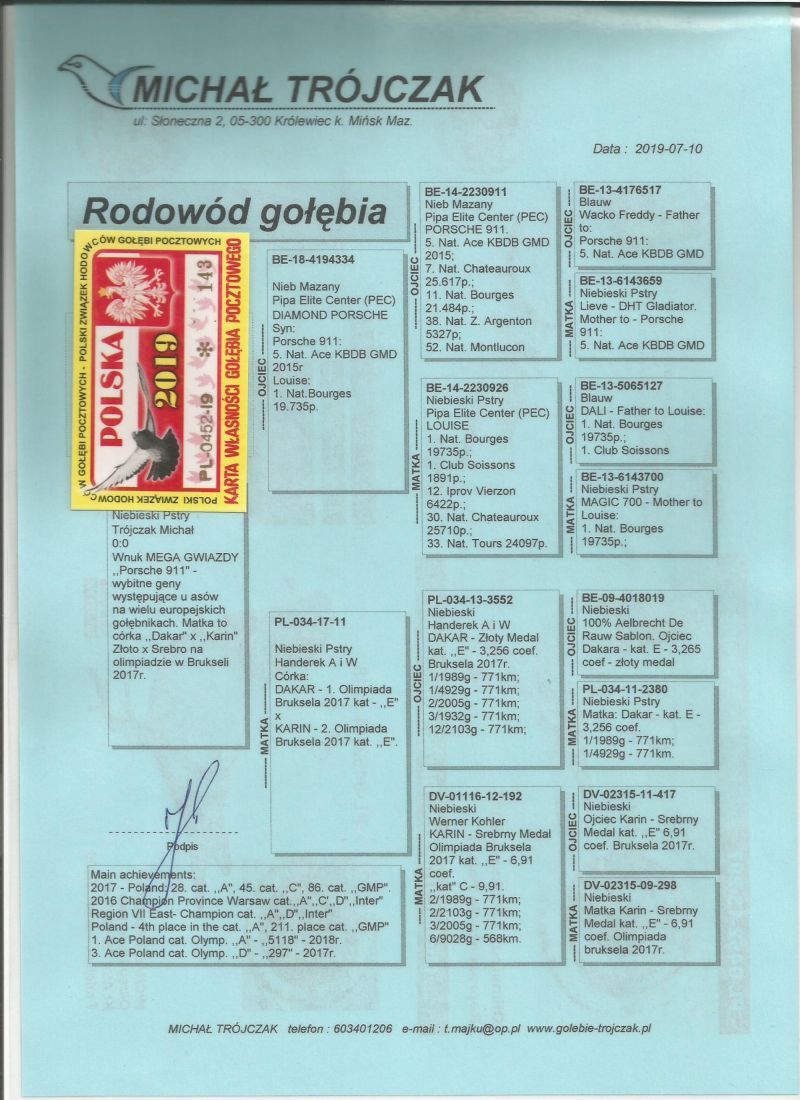 MICHAŁ TRÓJCZAK
ul: Słoneczna 2, 05-300 Królewiec k. Mińsk Maz.
Data : 2019-07-10
Rodowód gołębia
W GOŁĘBI POCZTOWYCH - POLSKI ZWIĄZEK HODOWCÓW GOŁĘBI POCZTOWYCH
POLSKI ZWIĄZEK HODOWC
POLSKA
2019
PL-0452-19 * 143
KARTA WŁASNOŚCI GOŁĘBIA POCZTOWEGO
Niebieski Pstry
Trójczak Michał
0:0
Wnuk MEGA GWIAZDY
,,Porsche 911" -
wybitne geny
występujące u asów
na wielu europejskich
gołębnikach. Matka to
córka ,,Dakar" x ,,Karin"
Złoto x Srebro na
olimpiadzie w Brukseli
2017r.
Podpis
OJCIEC
BE-18-4194334
Nieb Mazany
Pipa Elite Center (PEC)
DIAMOND PORSCHE
Syn:
Porsche 911:
5. Nat. Ace KBDB GMD
2015r
Louise:
1. Nat.Bourges
19.735p.
MATKA
PL-034-17-11
Niebieski Pstry
Handerek A i W
Córka:
DAKAR - 1. Olimpiada
Bruksela 2017 kat - ,,E"
x
KARIN - 2. Olimpiada
Bruksela 2017 kat. ,,E".
OJCIEC
BE-14-2230911
Nieb Mazany
Pipa Elite Center (PEC)
PORSCHE 911.
5. Nat. Ace KBDB GMD
2015;
7. Nat. Chateauroux
25.617p.;
11. Nat. Bourges
21.484p.;
38. Nat. Z. Argenton
5327p;
52. Nat. Montlucon
MATKA
BE-14-2230926
Niebieski Pstry
Pipa Elite Center (PEC)
LOUISE
1. Nat. Bourges
19735p.;
1. Club Soissons
1891p.;
12. Iprov Vierzon
6422p.;
30. Nat. Chateauroux
25710p.;
33. Nat. Tours 24097p.
OJCIEC
PL-034-13-3552
Niebieski
Handerek A i W
DAKAR - Złoty Medal
kat. ,,E" - 3,256 coef.
Bruksela 2017r.
1/1989g - 771km;
1/4929g - 771km;
2/2005g - 771km;
3/1932g - 771km;
12/2103g - 771km;
MATKA
DV-01116-12-192
Niebieski
Werner Kohler
KARIN - Srebrny Medal
Olimpiada Bruksela
2017 kat. ,,E" - 6,91
coef.
,,kat" C - 9,91.
2/1989g - 771km;
2/2103g - 771km;
3/2005g - 771km;
6/9028g - 568km.
OJCIEC
BE-13-4176517
Blauw
Wacko Freddy - Father
to:
Porsche 911:
5. Nat. Ace KBDB GMD
MATKA
BE-13-6143659
Niebieski Pstry
Lieve - DHT Gladiator.
Mother to - Porsche
911:
5. Nat. Ace KBDB GMD
OJCIEC
BE-13-5065127
Blauw
DALI - Father to Louise:
1. Nat. Bourges
19735p.;
1. Club Soissons
MATKA
BE-13-6143700
Niebieski Pstry
MAGIC 700 - Mother to
Louise:
1. Nat. Bourges
19735p.;
OJCIEC
BE-09-4018019
Niebieski
100% Aelbrecht De
Rauw Sablon. Ojciec
Dakara - kat. E - 3,265
coef - złoty medal
MATKA
PL-034-11-2380
Niebieski Pstry
Matka: Dakar - kat. E -
3,256 coef.
1/1989g - 771km;
1/4929g - 771km.
OJCIEC
DV-02315-11-417
Niebieski
Ojciec Karin - Srebrny
Medal kat. ,,E" 6,91
coef. Bruksela 2017r.
MATKA
DV-02315-09-298
Niebieski
Matka Karin - Srebrny
Medal kat. ,,E" - 6,91
coef. Olimpiada
bruksela 2017r.
Main achievements:
2017 - Poland: 28. cat. ,,A", 45. cat. ,,C", 86. cat. ,,GMP".
2016 Champion Province Warsaw cat.,,A",,C',,D",,Inter"
Region VII East- Champion cat. ,,A",,D",,Inter"
Poland - 4th place in the cat. ,,A", 211. place cat. ,,GMP"
1. Ace Poland cat. Olymp. ,,A" - ,,5118" - 2018r.
3. Ace Poland cat. Olymp. ,,D" - ,,297" - 2017r.
MICHAŁ TRÓJCZAK telefon : 603401206 e-mail : t.majku@op.pl www.golebie-trojczak.pl